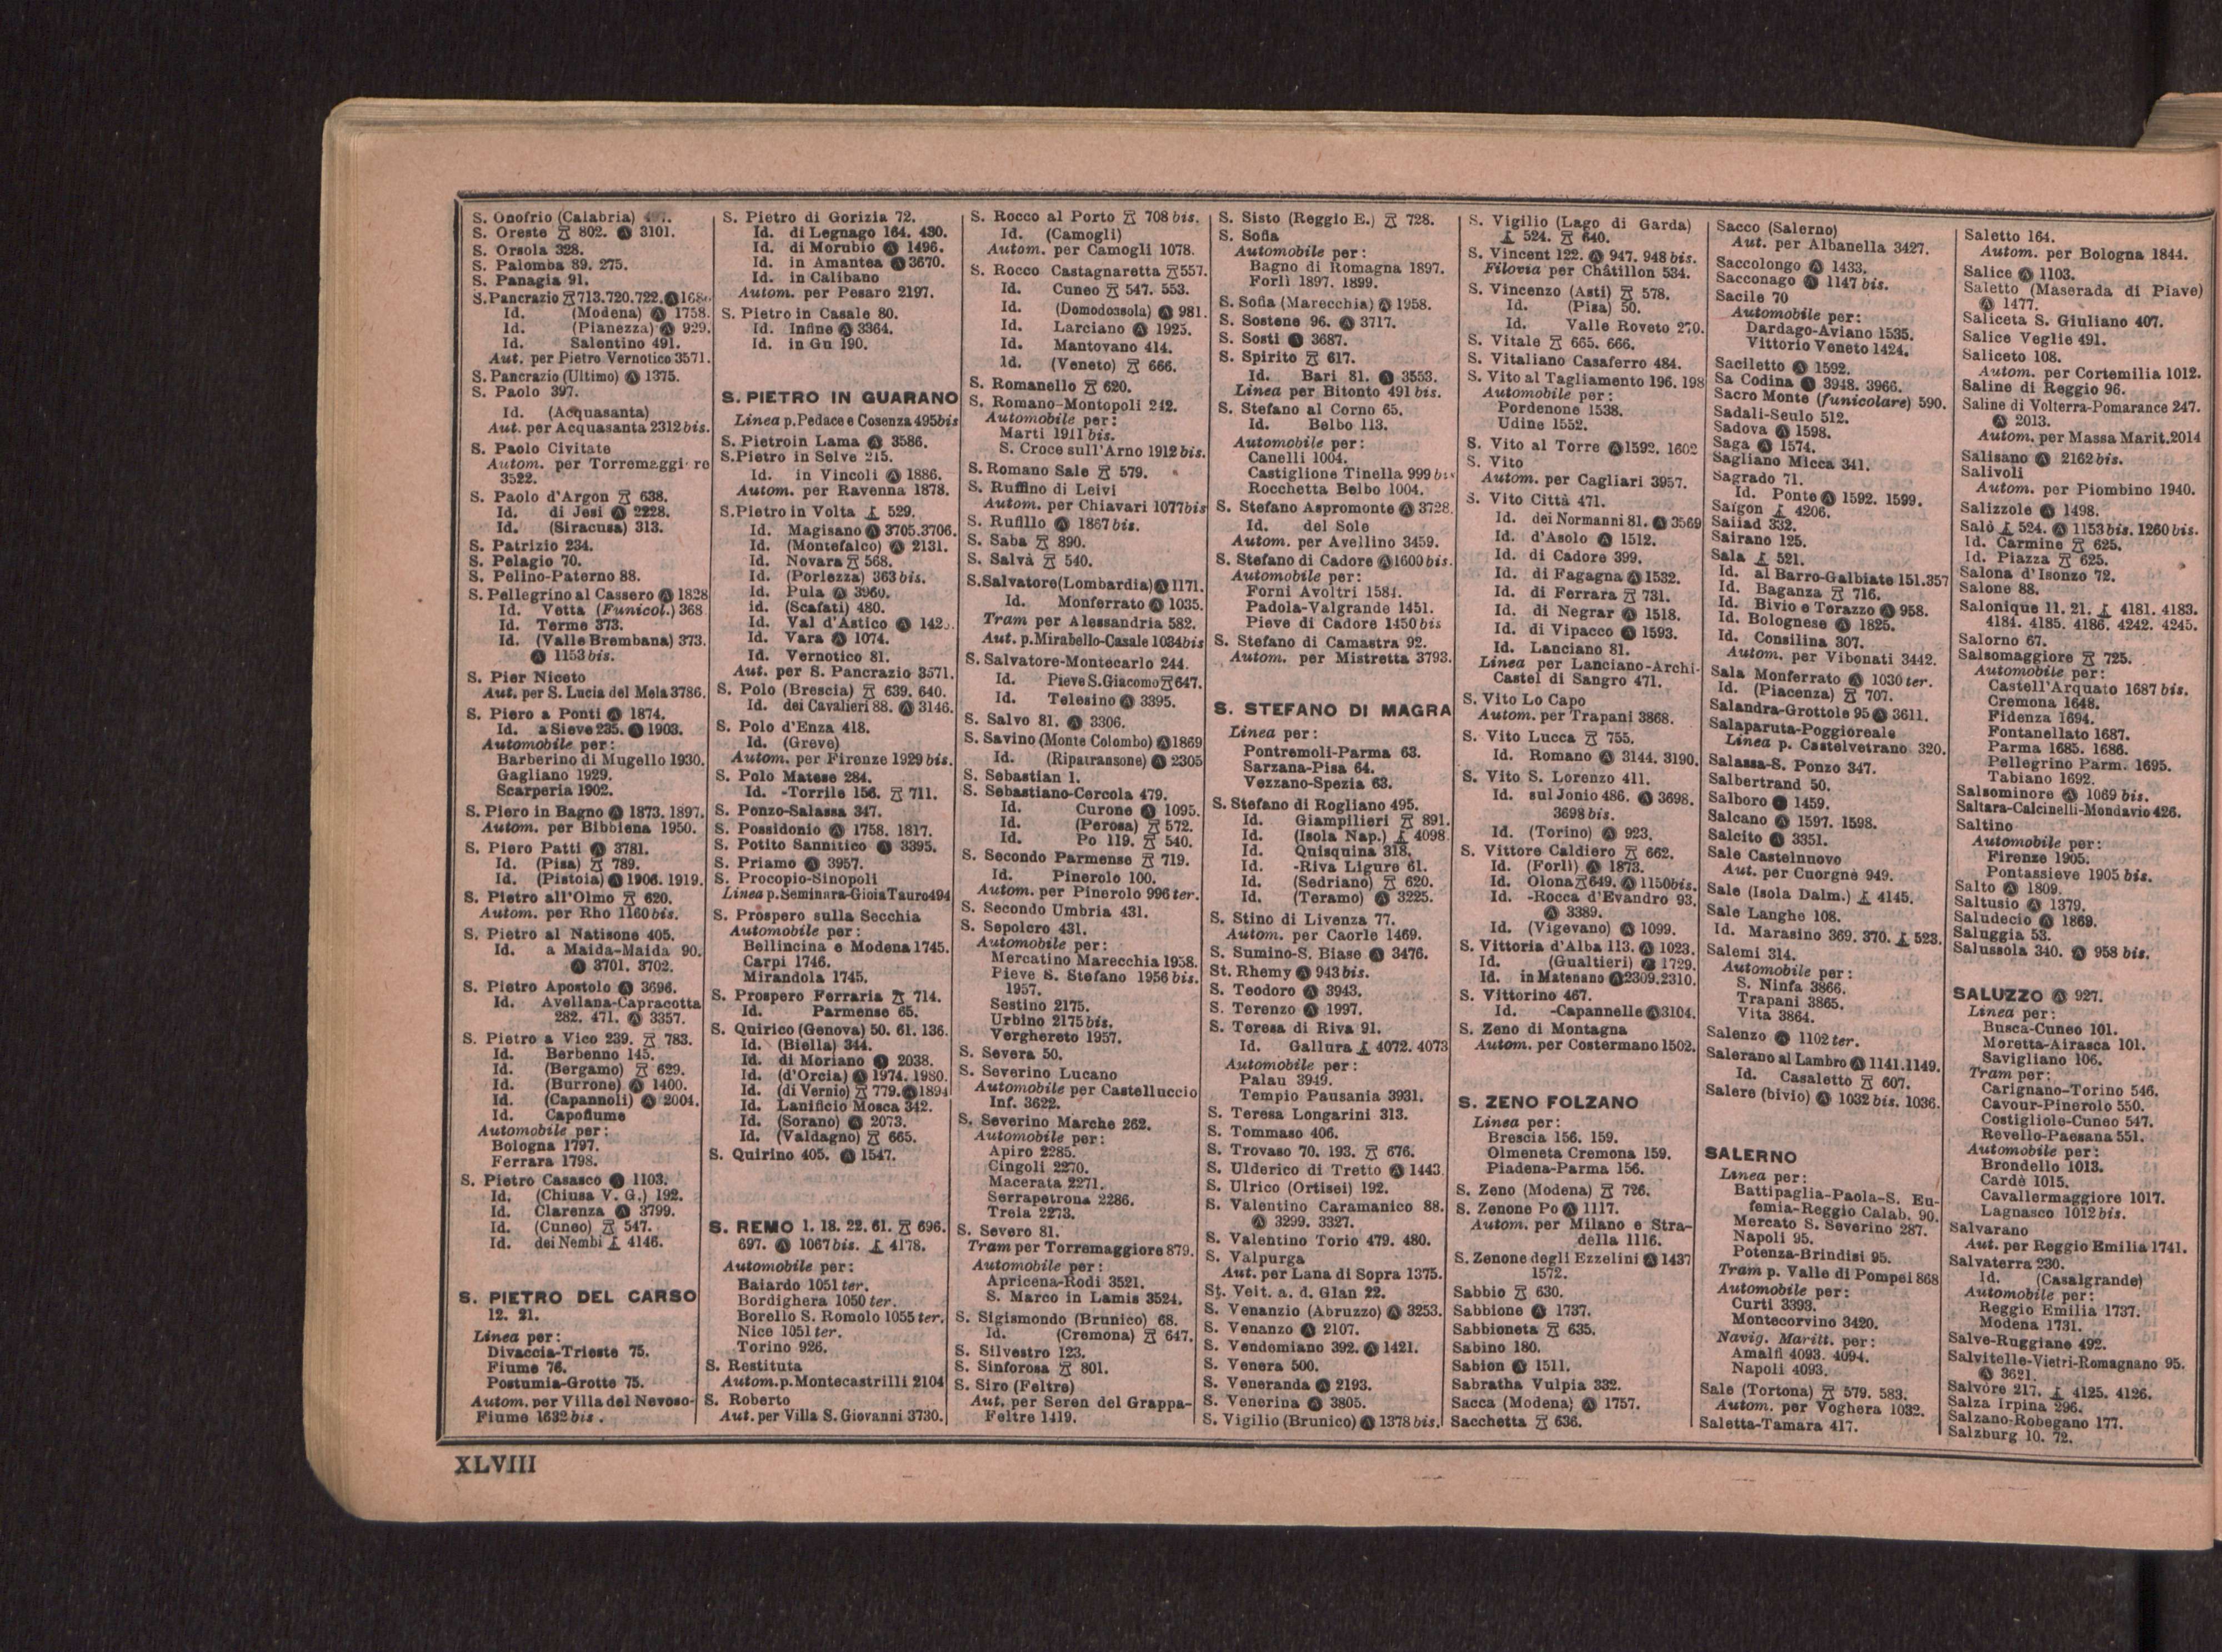 S. Onofrio (Calabria)
S. Oreste 802. Ⓐ 3101.
S. Orsola 328.
S. Palomba 89. 275.
S. Panagia 91.
S. Pancrazio 713.720.722. Ⓐ
Id. (Modena) Ⓐ 1758.
Id. (Pianezza) Ⓐ 929.
Id. Salentino 491.
Aut. per Pietro Vernotico 3571.
S. Pancrazio (Ultimo) Ⓐ 1375.
S. Paolo 397.
Id. (Acquasanta)
Aut. per Acquasanta 2312 bis.
S. Paolo Civitate
Autom. per Torremaggiore
3522.
S. Paolo d'Argon 638.
Id. di Jesi Ⓐ 2228.
Id. (Siracusa) 313.
S. Patrizio 234.
S. Pelagio 70.
S. Pelino-Paterno 88.
S. Pellegrino al Cassero Ⓐ 1828
Id. Vetta (Funicol.) 368
Id. Terme 373.
Id. (Valle Brembana) 373.
Ⓐ 1153 bis.
S. Pier Niceto
Aut. per S. Lucia del Mela 3786.
S. Piero a Ponti Ⓐ 1874.
Id. a Sieve 235. Ⓐ 1903.
Automobile per:
Barberino di Mugello 1930.
Gagliano 1929.
Scarperia 1902.
S. Piero in Bagno Ⓐ 1873. 1897.
Autom. per Bibbiena 1950.
S. Piero Patti Ⓐ 3781.
Id. (Pisa) 789.
Id. (Pistoia) Ⓐ 1906. 1919.
S. Pietro all'Olmo 620.
Autom. per Rho 1160 bis.
S. Pietro al Natisone 405.
Id. a Maida-Maida 90.
Ⓐ 3701. 3702.
S. Pietro Apostolo Ⓐ 3696.
Id. Avellana-Capracotta
282. 471. Ⓐ 3357.
S. Pietro a Vico 239. 783.
Id. Berbenno 145.
Id. (Bergamo) 629.
Id. (Burrone) Ⓐ 1400.
Id. (Capannoli) Ⓐ 2004.
Id. Capofiume
Automobile per:
Bologna 1797.
Ferrara 1798.
S. Pietro Casasco Ⓐ 1103.
Id. (Chiusa V. G.) 192.
Id. Clarenza Ⓐ 3799.
Id. (Cuneo) 547.
Id. dei Nembi 4146.
S. PIETRO DEL CARSO
12. 21.
Linea per:
Divaccia-Trieste 75.
Fiume 76.
Postumia-Grotte 75.
Autom. per Villa del Nevoso-
Fiume 1632 bis.
S. Pietro di Gorizia 72.
Id. di Legnago 164. 430.
Id. di Morubio Ⓐ 1496.
Id. in Amantea Ⓐ 3670.
Id. in Calibano
Autom. per Pesaro 2197.
S. Pietro in Casale 80.
Id. Infine Ⓐ 3364.
Id. in Gu 190.
S. PIETRO IN GUARANO
Linea p. Pedace e Cosenza 495 bis
S. Pietro in Lama Ⓐ 3586.
S. Pietro in Selve 215.
Id. in Vincoli Ⓐ 1886.
Autom. per Ravenna 1878.
S. Pietro in Volta 529.
Id. Magisano Ⓐ 3705.3706.
Id. (Montefalco) Ⓐ 2131.
Id. Novara 568.
Id. (Porlezza) 363 bis.
Id. Pula Ⓐ 3960.
id. (Scafati) 480.
Id. Val d'Astico Ⓐ
Id. Vara Ⓐ 1074.
Id. Vernotico 81.
Aut. per S. Pancrazio 3571.
S. Polo (Brescia) 639. 640.
Id. dei Cavalieri 88. Ⓐ 3146.
S. Polo d'Enza 418.
Id. (Greve)
Autom. per Firenze 1929 bis.
S. Polo Matese 284.
Id. -Torrile 156. 711.
S. Ponzo-Salassa 347.
S. Possidonio Ⓐ 1758. 1817.
S. Potito Sannitico Ⓐ 3395.
S. Priamo Ⓐ 3957.
S. Procopio-Sinopoli
Linea p. Seminara-Gioia Tauro 494
S. Prospero sulla Secchia
Automobile per:
Bellincina e Modena 1745.
Carpi 1746.
Mirandola 1745.
S. Prospero Ferraria 714.
Id. Parmense 65.
S. Quirico (Genova) 50. 61. 136.
Id. (Biella) 344.
Id. di Moriano Ⓐ 2038.
Id. (d'Orcia) Ⓐ 1974. 1980.
Id. (di Vernio) 779. Ⓐ 1894
Id. Lanificio Mosca 342.
Id. (Sorano) Ⓐ 2073.
Id. (Valdagno) 665.
S. Quirino 405. Ⓐ 1547.
S. REMO 1. 18. 22. 61. 696.
697. Ⓐ 1067 bis. 4178.
Automobile per:
Baiardo 1051 ter.
Bordighera 1050 ter.
Borello S. Romolo 1055 ter.
Nice 1051 ter.
Torino 926.
S. Restituta
Autom. p. Montecastrilli 2104
S. Roberto
Aut. per Villa S. Giovanni 3730.
S. Rocco al Porto 708 bis.
Id. (Camogli)
Autom. per Camogli 1078.
S. Rocco Castagnaretta 557.
Id. Cuneo 547. 553.
Id. (Domodossola) Ⓐ 981.
Id. Larciano Ⓐ 1925.
Id. Mantovano 414.
Id. (Veneto) 666.
S. Romanello 620.
S. Romano-Montopoli 242.
Automobile per:
Marti 1911 bis.
S. Croce sull'Arno 1912 bis.
S. Romano Sale 579.
S. Ruffino di Leivi
Autom. per Chiavari 1077 bis
S. Rufillo Ⓐ 1867 bis.
S. Saba 890.
S. Salvà 540.
S. Salvatore (Lombardia) Ⓐ 1171.
Id. Monferrato Ⓐ 1035.
Tram per Alessandria 582.
Aut. p. Mirabello-Casale 1034 bis
S. Salvatore-Montecarlo 244.
Id. Pieve S. Giacomo 647.
Id. Telesino Ⓐ 3395.
S. Salvo 81. Ⓐ 3306.
S. Savino (Monte Colombo) Ⓐ 1869
Id. (Ripatransone) Ⓐ 2305
S. Sebastian 1.
S. Sebastiano-Cercola 479.
Id. Curone Ⓐ 1095.
Id. (Perosa) 572.
Id. Po 119. 540.
S. Secondo Parmense 719.
Id. Pinerolo 100.
Autom. per Pinerolo 996 ter.
S. Secondo Umbria 431.
S. Sepolcro 431.
Automobile per:
Mercatino Marecchia 1958.
Pieve S. Stefano 1956 bis.
1957.
Sestino 2175.
Urbino 2175 bis.
Verghereto 1957.
S. Severa 50.
S. Severino Lucano
Automobile per Castelluccio
Inf. 3622.
S. Severino Marche 262.
Automobile per:
Apiro 2285.
Cingoli 2270.
Macerata 2271.
Serrapetrona 2286.
Treia 2273.
S. Severo 81.
Tram per Torremaggiore 879.
Automobile per:
Apricena-Rodi 3521.
S. Marco in Lamis 3524.
S. Sigismondo (Brunico) 68.
Id. (Cremona) 647.
S. Silvestro 123.
S. Sinforosa 801.
S. Siro (Feltre)
Aut. per Seren del Grappa-
Feltre 1419.
S. Sisto (Reggio E.) 728.
S. Sofia
Automobile per:
Bagno di Romagna 1897.
Forlì 1897. 1899.
S. Sofia (Marecchia) Ⓐ 1958.
S. Sostene 96. Ⓐ 3717.
S. Sosti Ⓐ 3687.
S. Spirito 617.
Id. Bari 81. Ⓐ 3553.
Linea per Bitonto 491 bis.
S. Stefano al Corno 65.
Id. Belbo 113.
Automobile per:
Canelli 1004.
Castiglione Tinella 999 bis
Rocchetta Belbo 1004.
S. Stefano Aspromonte Ⓐ 3728.
Id. del Sole
Autom. per Avellino 3459.
S. Stefano di Cadore Ⓐ 1600 bis.
Automobile per:
Forni Avoltri 1584.
Padola-Valgrande 1451.
Pieve di Cadore 1450 bis
S. Stefano di Camastra 92.
Autom. per Mistretta 3793.
S. STEFANO DI MAGRA
Linea per:
Pontremoli-Parma 63.
Sarzana-Pisa 64.
Vezzano-Spezia 63.
S. Stefano di Rogliano 495.
Id. Giampilieri 891.
Id. (Isola Nap.) 4098
Id. Quisquina 318.
Id. -Riva Ligure 61.
Id. (Sedriano) 620.
Id. (Teramo) Ⓐ 3225.
S. Stino di Livenza 77.
Autom. per Caorle 1469.
S. Sumino-S. Biase Ⓐ 3476.
St. Rhemy Ⓐ 943 bis.
S. Teodoro Ⓐ 3943.
S. Terenzo Ⓐ 1997.
S. Teresa di Riva 91.
Id. Gallura 4072. 4073
Automobile per:
Palau 3949.
Tempio Pausania 3931.
S. Teresa Longarini 313.
S. Tommaso 406.
S. Trovaso 70. 193. 676.
S. Ulderico di Tretto Ⓐ 1443
S. Ulrico (Ortisei) 192.
S. Valentino Caramanico 88.
Ⓐ 3299. 3327.
S. Valentino Torio 479. 480.
S. Valpurga
Aut. per Lana di Sopra 1375.
St. Veit. a. d. Glan 22.
S. Venanzio (Abruzzo) Ⓐ 3253.
S. Venanzo Ⓐ 2107.
S. Vendemiano 392. Ⓐ 1421.
S. Venera 500.
S. Veneranda Ⓐ 2193.
S. Venerina Ⓐ 3805.
S. Vigilio (Brunico) Ⓐ 1378 bis.
S. Vigilio (Lago di Garda)
524. 640.
S. Vincent 122. Ⓐ 947. 948 bis.
Filovia per Châtillon 534.
S. Vincenzo (Asti) 578.
Id. (Pisa) 50.
Id. Valle Roveto 270.
S. Vitale 665. 666.
S. Vitaliano Casaferro 484.
S. Vito al Tagliamento 196. 198
Automobile per:
Pordenone 1538.
Udine 1552.
S. Vito al Torre Ⓐ 1592. 1602
S. Vito
Autom. per Cagliari 3957.
S. Vito Città 471.
Id. dei Normanni 81. Ⓐ 3569
Id. d'Asolo Ⓐ 1512.
Id. di Cadore 399.
Id. di Fagagna Ⓐ 1532.
Id. di Ferrara 731.
Id. di Negrar Ⓐ 1518.
Id. di Vipacco Ⓐ 1593.
Id. Lanciano 81.
Linea per Lanciano-Archi-
Castel di Sangro 471.
S. Vito Lo Capo
Autom. per Trapani 3868.
S. Vito Lucca 755.
Id. Romano Ⓐ 3144. 3190.
S. Vito S. Lorenzo 411.
Id. sul Jonio 486. Ⓐ 3698.
3698 bis.
Id. (Torino) Ⓐ 923.
S. Vittore Caldiero 662.
Id. (Forlì) Ⓐ 1873.
Id. Olona 649. Ⓐ 1150 bis.
Id. -Rocca d'Evandro 93.
Ⓐ 3389.
Id. (Vigevano) Ⓐ 1099.
S. Vittoria d'Alba 113. Ⓐ 1023.
Id. (Gualtieri) Ⓐ 1729.
Id. in Matenano Ⓐ 2309.2310.
S. Vittorino 467.
Id. -Capannelle Ⓐ 3104.
S. Zeno di Montagna
Autom. per Costermano 1502.
S. ZENO FOLZANO
Linea per:
Brescia 156. 159.
Olmeneta Cremona 159.
Piadena-Parma 156.
S. Zeno (Modena) 726.
S. Zenone Po Ⓐ 1117.
Autom. per Milano e Stra-
della 1116.
S. Zenone degli Ezzelini Ⓐ 1437
1572.
Sabbio 630.
Sabbione Ⓐ 1737.
Sabbioneta 635.
Sabino 180.
Sabion Ⓐ 1511.
Sabratha Vulpia 332.
Sacca (Modena) Ⓐ 1757.
Sacchetta 636.
Sacco (Salerno)
Aut. per Albanella 3427.
Saccolongo Ⓐ 1433.
Sacconago Ⓐ 1147 bis.
Sacile 70
Automobile per:
Dardago-Aviano 1535.
Vittorio Veneto 1424.
Saciletto Ⓐ 1592.
Sa Codina Ⓐ 3948. 3966.
Sacro Monte (funicolare) 590.
Sadali-Seulo 512.
Sadova Ⓐ 1598.
Saga Ⓐ 1574.
Sagliano Micca 341.
Sagrado 71.
Id. Ponte Ⓐ 1592. 1599.
Saïgon 4206.
Saiiad 332.
Sairano 125.
Sala 521.
Id. al Barro-Galbiate 151.357
Id. Baganza 716.
Id. Bivio e Torazzo Ⓐ 958.
Id. Bolognese Ⓐ 1825.
Id. Consilina 307.
Autom. per Vibonati 3442.
Sala Monferrato Ⓐ 1030 ter.
Id. (Piacenza) 707.
Salandra-Grottole 95 Ⓐ 3611.
Salaparuta-Poggioreale
Linea p. Castelvetrano 320.
Salassa-S. Ponzo 347.
Salbertrand 50.
Salboro Ⓐ 1459.
Salcano Ⓐ 1597. 1598.
Salcito Ⓐ 3351.
Sale Castelnuovo
Aut. per Cuorgnè 949.
Sale (Isola Dalm.) 4145.
Sale Langhe 108.
Id. Marasino 369. 370. 523.
Salemi 314.
Automobile per:
S. Ninfa 3866.
Trapani 3865.
Vita 3864.
Salenzo Ⓐ 1102 ter.
Salerano al Lambro Ⓐ 1141.1149.
Id. Casaletto 607.
Salere (bivio) Ⓐ 1032 bis. 1036.
SALERNO
Linea per:
Battipaglia-Paola-S. Eu-
femia-Reggio Calab. 90.
Mercato S. Severino 287.
Napoli 95.
Potenza-Brindisi 95.
Tram p. Valle di Pompei 868
Automobile per:
Curti 3393.
Montecorvino 3420.
Navig. Maritt. per:
Amalfi 4093. 4094.
Napoli 4093.
Sale (Tortona) 579. 583.
Autom. per Voghera 1032.
Saletta-Tamara 417.
Saletto 164.
Autom. per Bologna 1844.
Salice Ⓐ 1103.
Saletto (Maserada di Piave)
Ⓐ 1477.
Saliceta S. Giuliano 407.
Salice Veglie 491.
Saliceto 108.
Autom. per Cortemilia 1012.
Saline di Reggio 96.
Saline di Volterra-Pomarance 247.
Ⓐ 2013.
Autom. per Massa Marit. 2014
Salisano Ⓐ 2162 bis.
Salivoli
Autom. per Piombino 1940.
Salizzole Ⓐ 1498.
Salò 524. Ⓐ 1153 bis. 1260 bis.
Id. Carmine 625.
Id. Piazza 625.
Salona d'Isonzo 72.
Salone 88.
Salonique 11. 21. 4181. 4183.
4184. 4185. 4186. 4242. 4245.
Salorno 67.
Salsomaggiore 725.
Automobile per:
Castell'Arquato 1687 bis.
Cremona 1648.
Fidenza 1694.
Fontanellato 1687.
Parma 1685. 1686.
Pellegrino Parm. 1695.
Tabiano 1692.
Salsominore Ⓐ 1069 bis.
Saltara-Calcinelli-Mondavio 426.
Saltino
Automobile per:
Firenze 1905.
Pontassieve 1905 bis.
Salto Ⓐ 1809.
Saltusio Ⓐ 1379.
Saludecio Ⓐ 1869.
Saluggia 53.
Salussola 340. Ⓐ 958 bis.
SALUZZO Ⓐ 927.
Linea per:
Busca-Cuneo 101.
Moretta-Airasca 101.
Savigliano 106.
Tram per:
Carignano-Torino 546.
Cavour-Pinerolo 550.
Costigliole-Cuneo 547.
Revello-Paesana 551.
Automobile per:
Brondello 1013.
Cardè 1015.
Cavallermaggiore 1017.
Lagnasco 1012 bis.
Salvarano
Aut. per Reggio Emilia 1741.
Salvaterra 230.
Id. (Casalgrande)
Automobile per:
Reggio Emilia 1737.
Modena 1731.
Salve-Ruggiano 492.
Salvitelle-Vietri-Romagnano 95.
Ⓐ 3621.
Salvore 217. 4125. 4126.
Salza Irpina 296.
Salzano-Robegano 177.
Salzburg 10. 72.
XLVIII